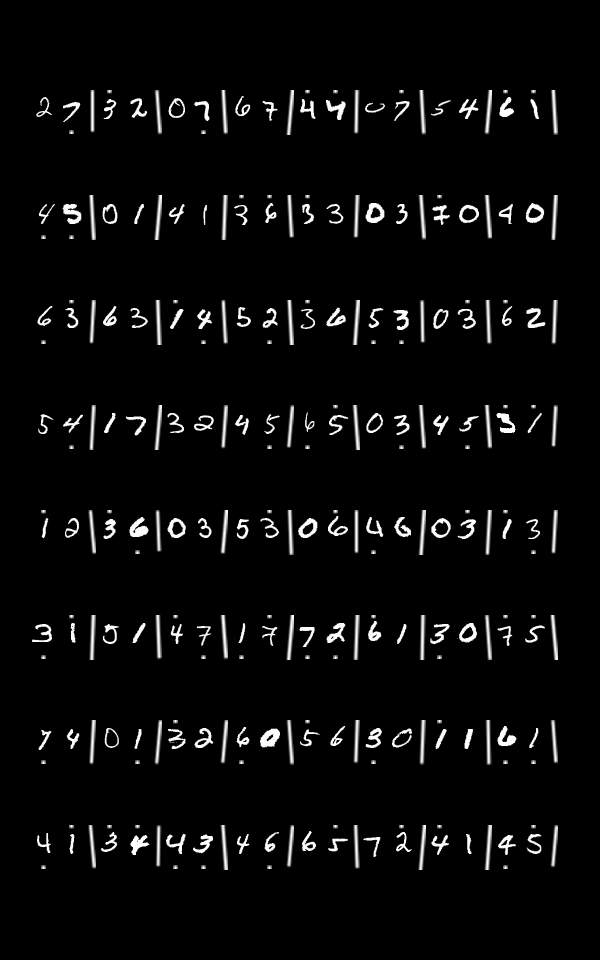 2 7̣ | 3̇ 2 | 0 7̣ | 6 7 | 4̇ 4̇ | 0 7̇ | 5 4 | 6 1̇ |
4̣ 5̣ | 0 1 | 4 1 | 3̇ 6̇ | 3̇ 3 | 0 3 | 7̇ 0 | 4̇ 0 |
6̣ 3̇ | 6 3 | 1̇ 4̣ | 5 2̣ | 3̇ 6 | 5̣ 3̣ | 0 3̇ | 6̇ 2 |
5 4 | 1 7 | 3 2 | 4 5̣ | 6̣ 5̇ | 0 3̣ | 4 5̣ | 3̇ 1̇ |
1̇ 2 | 3̇ 6̣ | 0 3 | 5 3̇ | 0 6̇ | 4̣ 6 | 0 3 | 1̇ 3̣ |
3̣ 1̇ | 5 1 | 4̇ 7̣ | 1̣ 7̇ | 7̣ 2̣ | 6̇ 1 | 3̣ 0 | 7̇ 5 |
7̣ 4 | 0 1̣ | 3̇ 2 | 6̣ 0 | 5̇ 6 | 3̣ 0 | 1̇ 1 | 6̣ 1̣ |
4̣ 1̇ | 3̇ 4̇ | 4̣ 3̣ | 4 6̣ | 6 5̇ | 7 2̇ | 4̇ 1 | 4̣ 5 |